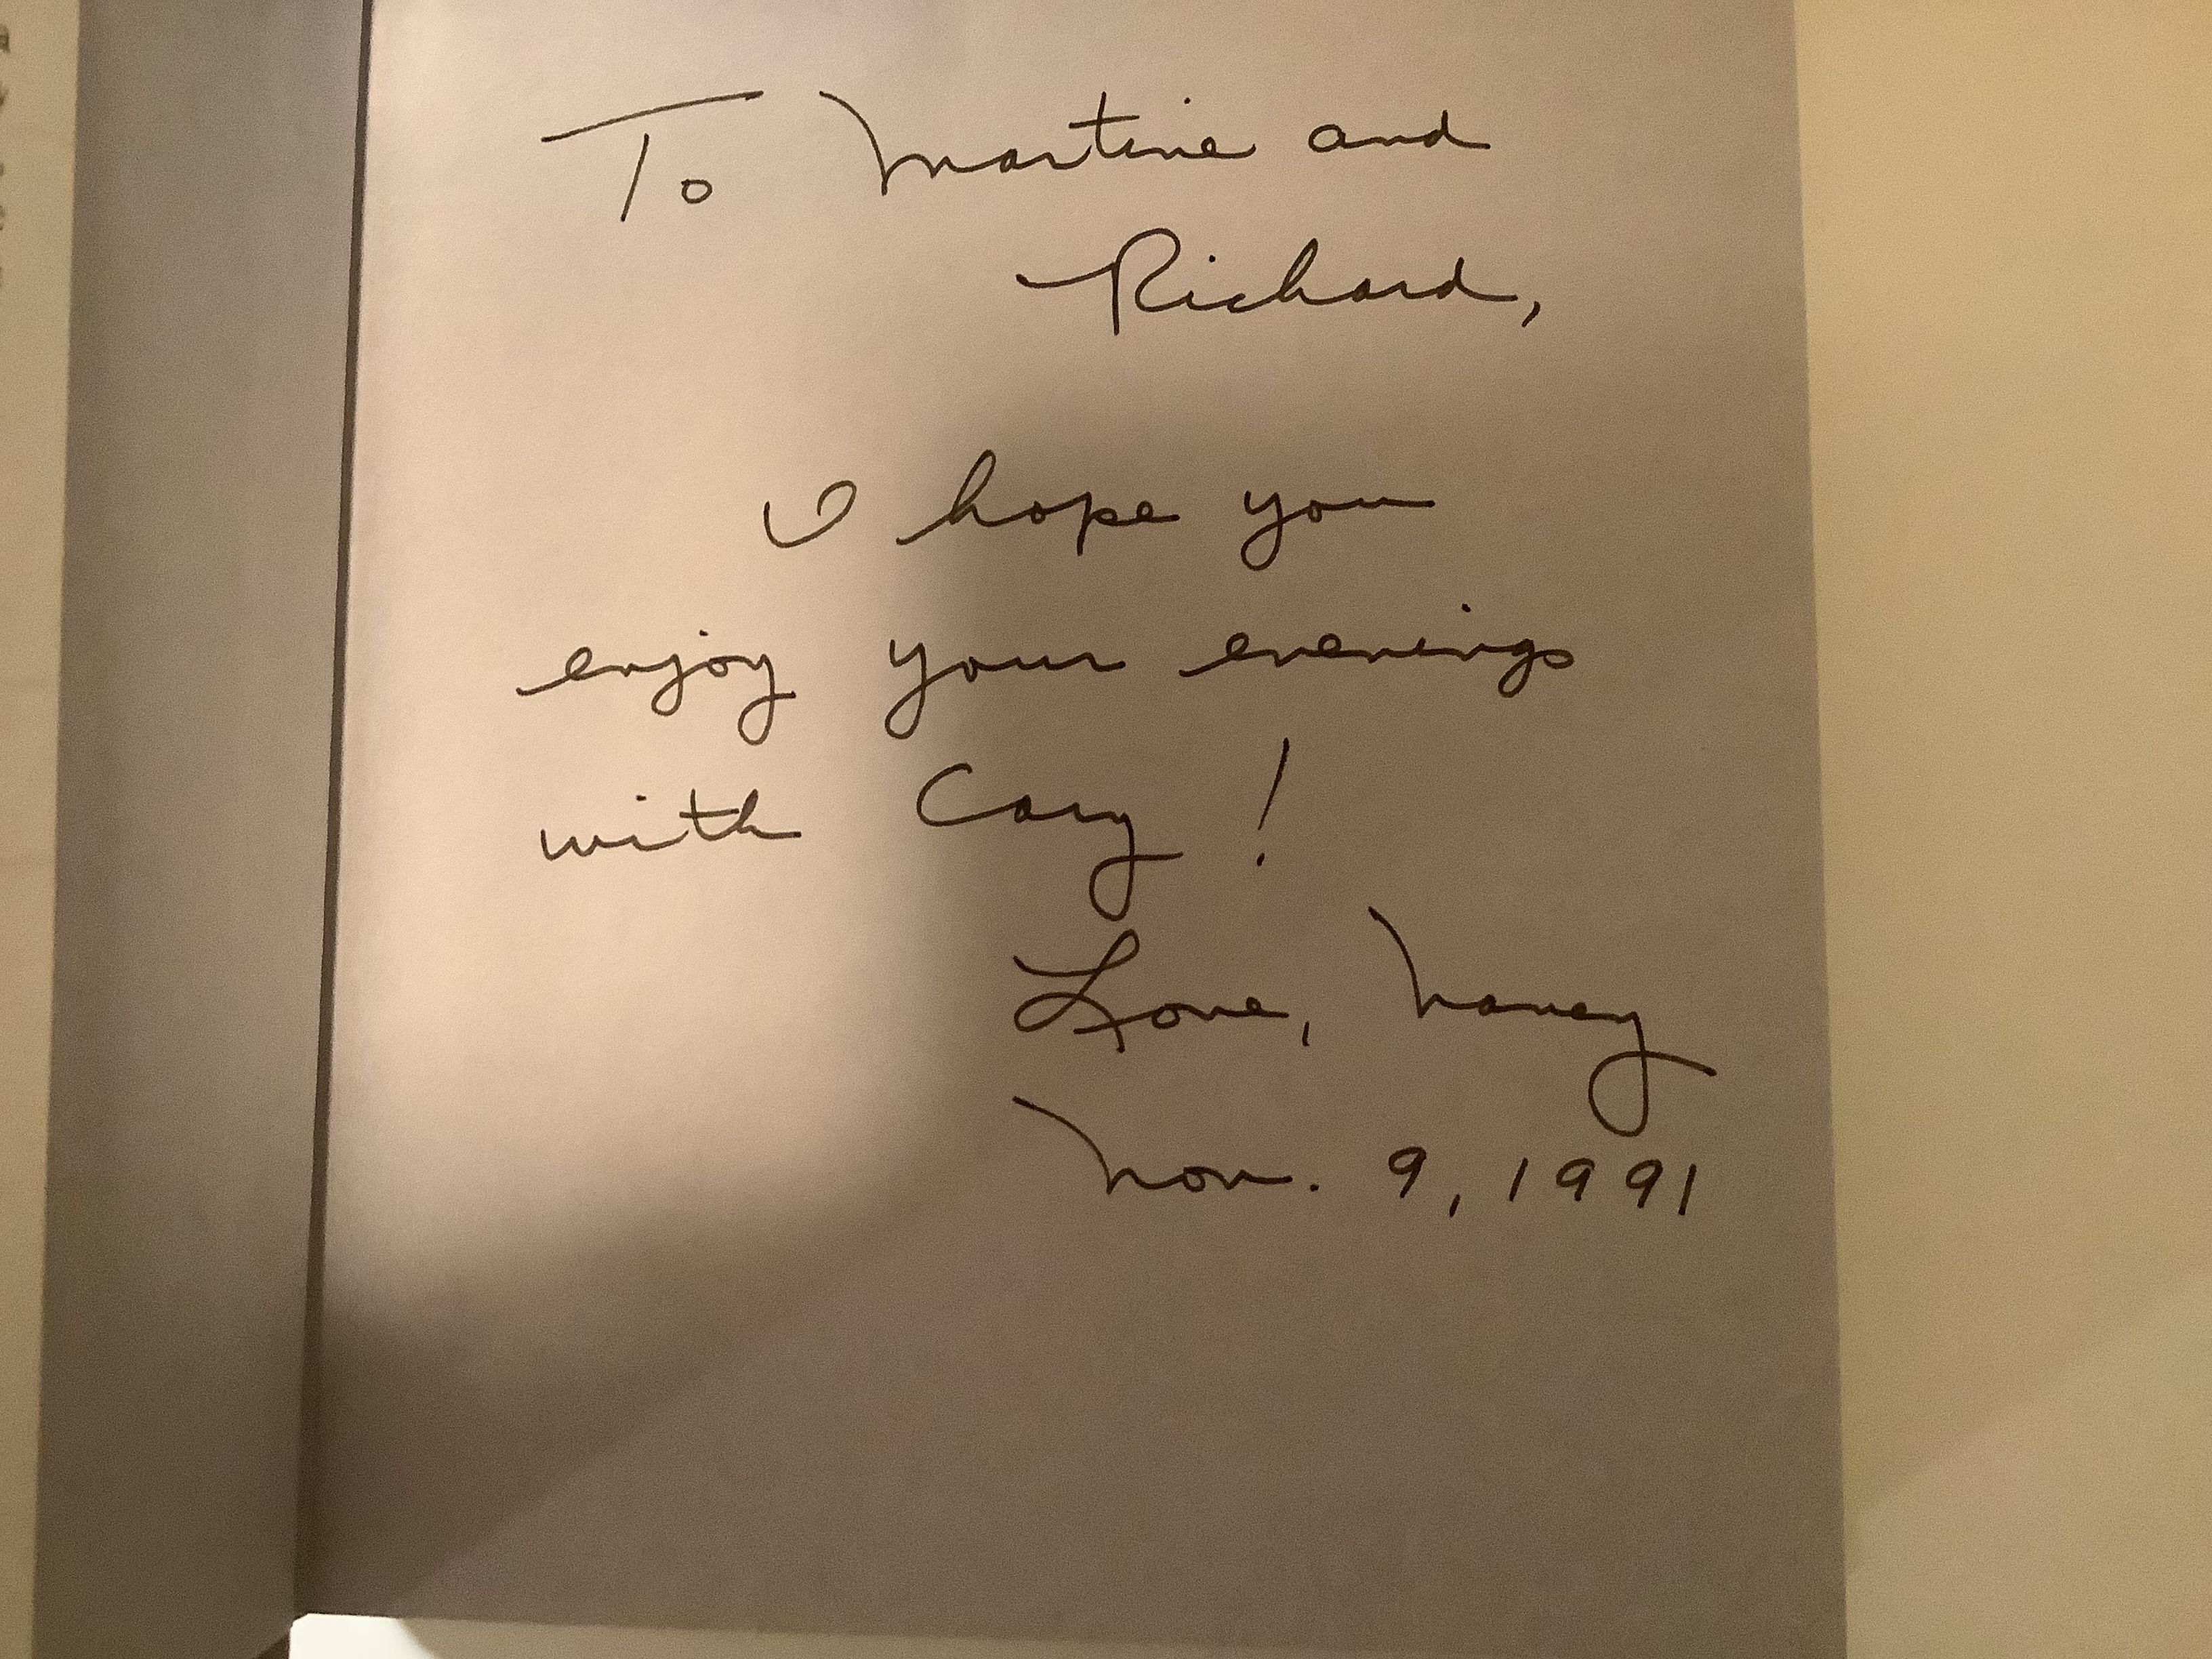 To Martine and
Richard,
I hope you
enjoy your evenings
with Cary!
Love, Nancy
Nov. 9, 1991